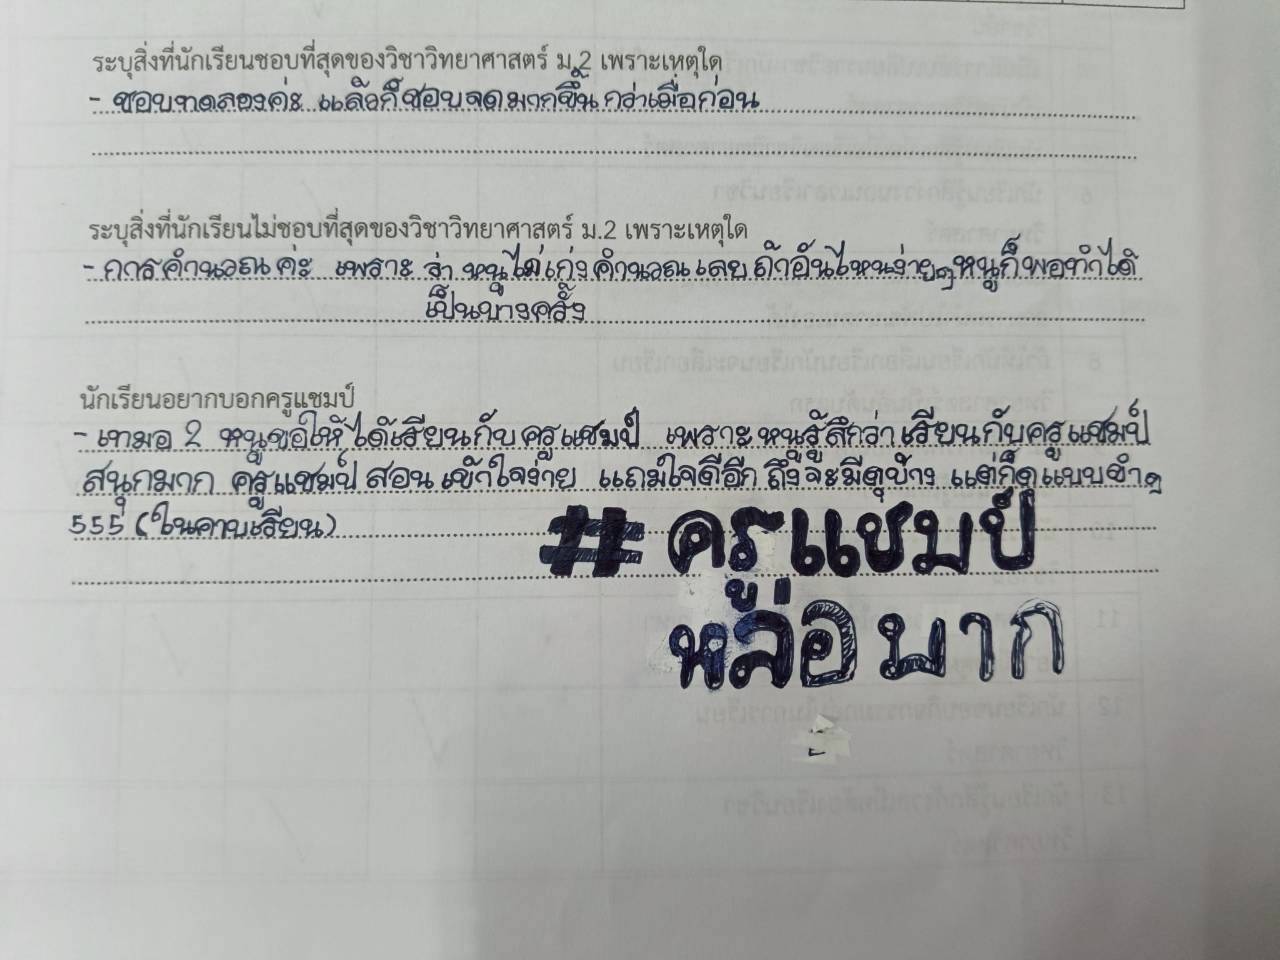 ระบุสิ่งที่นักเรียนชอบที่สุดของวิชาวิทยาศาสตร์ ม.2 เพราะเหตุใด
- ชอบทดลองค่ะ แล้วก็ชอบจดมากขึ้น กว่าเมื่อก่อน
ระบุสิ่งที่นักเรียนไม่ชอบที่สุดของวิชาวิทยาศาสตร์ ม.2 เพราะเหตุใด
- การคำนวณ ค่ะ เพราะ ว่า หนูไม่เก่งคำนวณเลย ถ้าอันไหนง่ายๆ หนูก็พอทำได้
เป็นบางครั้ง
นักเรียนอยากบอกครูแชมป์
- เทมอ 2 หนูขอให้ได้เรียนกับครูแชมป์ เพราะหนูรู้สึกว่าเรียนกับครูแชมป์
สนุกมาก ครูแชมป์ สอน เข้าใจง่าย แถมใจดีอีก ถึงจะมีดุบ้าง แต่ก็ดุแบบขำๆ
555 (ในคาบเรียน)
#ครูแชมป์
หล่อมาก